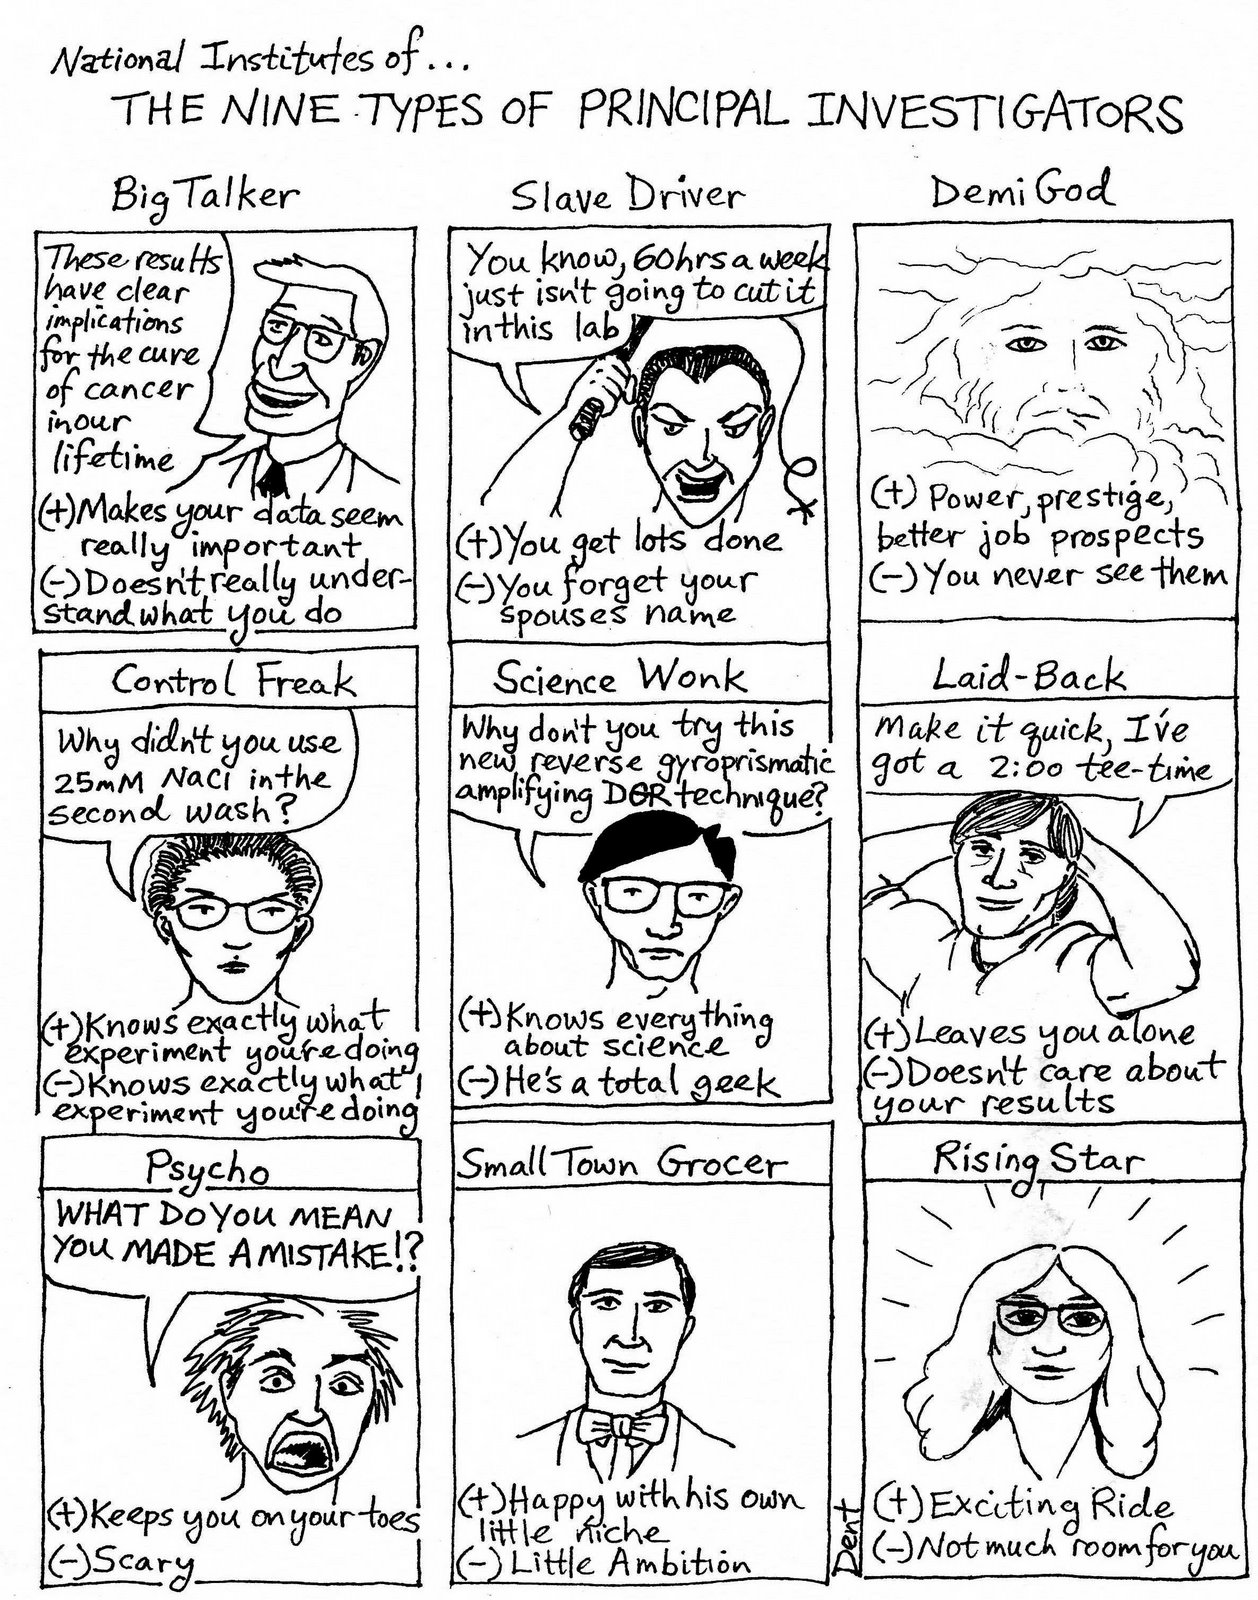 National Institutes of...
THE NINE TYPES OF PRINCIPAL INVESTIGATORS
Big Talker
These results
have clear
implications
for the cure
of cancer
in our
lifetime
(+) Makes your data seem
really important
(-) Doesn't really under-
stand what you do
Slave Driver
You know, 60hrs a week
just isn't going to cut it
in this lab
(+) You get lots done
(-) You forget your
spouses name
Demi God
(+) Power, prestige,
better job prospects
(-) You never see them
Control Freak
Why didn't you use
25mM NaCl in the
second wash?
(+) Knows exactly what
experiment you're doing
(-) Knows exactly what
experiment you're doing
Science Wonk
Why don't you try this
new reverse gyroprismatic
amplifying DOR technique?
(+) Knows everything
about science
(-) He's a total geek
Laid-Back
Make it quick, I've
got a 2:00 tee-time
(+) Leaves you alone
(-) Doesn't care about
your results
Psycho
WHAT DO YOU MEAN
YOU MADE A MISTAKE!?
(+) Keeps you on your toes
(-) Scary
Small Town Grocer
(+) Happy with his own
little niche
(-) Little Ambition
Rising Star
(+) Exciting Ride
(-) Not much room for you
Dent